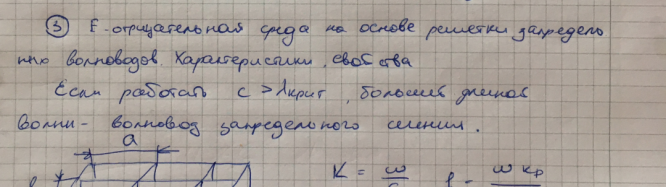 ③ ε-отрицательная среда на основе решетки запредель
ных волноводов. Характеристики, свойства
Если работать с >λкрит, большей длиной
волны - волновод запредельного сечения.
a
K = ω
ω кр